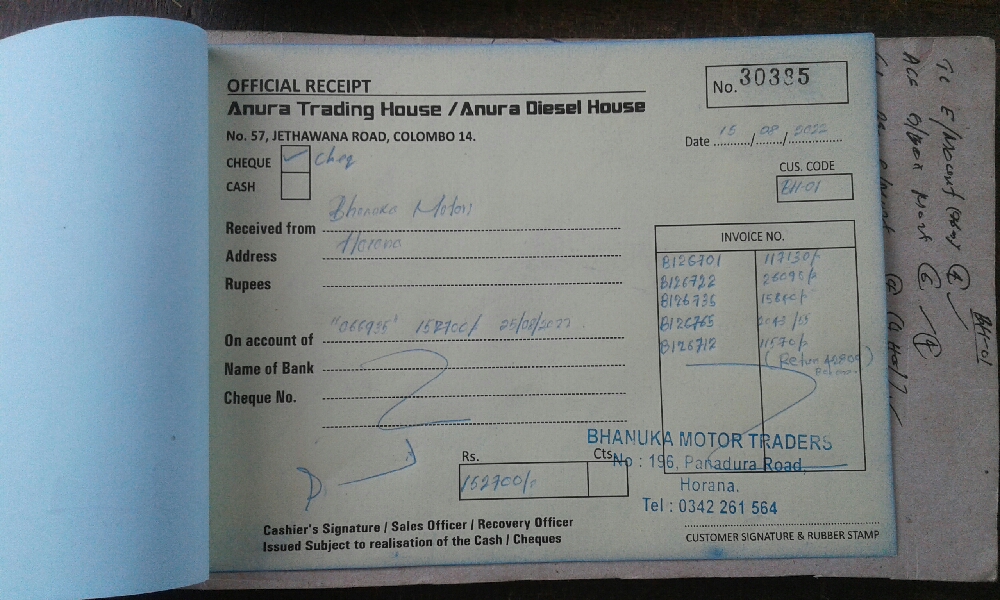 OFFICIAL RECEIPT
No. 30385
Anura Trading House / Anura Diesel House
No. 57, JETHAWANA ROAD, COLOMBO 14.
Date 15 / 08 / 2022
CHEQUE ✓ Cheq
CASH
CUS. CODE
BH-01
Received from Bhanuka Motors
Address Horana
Rupees
On account of "066935" 152700/- 25/08/2022
Name of Bank
Cheque No.
INVOICE NO.
B126701 117130/-
B126722
B126735 15840/-
B126765
B126712 11570/-
(Return
Rs. Cts.
152700/-
BHANUKA MOTOR TRADERS
No : 196, Panadura Road,
Horana.
Tel : 0342 261 564
Cashier's Signature / Sales Officer / Recovery Officer
Issued Subject to realisation of the Cash / Cheques
CUSTOMER SIGNATURE & RUBBER STAMP
BH-01